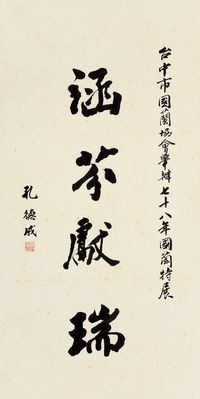 台中市國蘭協會舉辦七十八年國蘭特展
涵芬獻瑞
孔德成